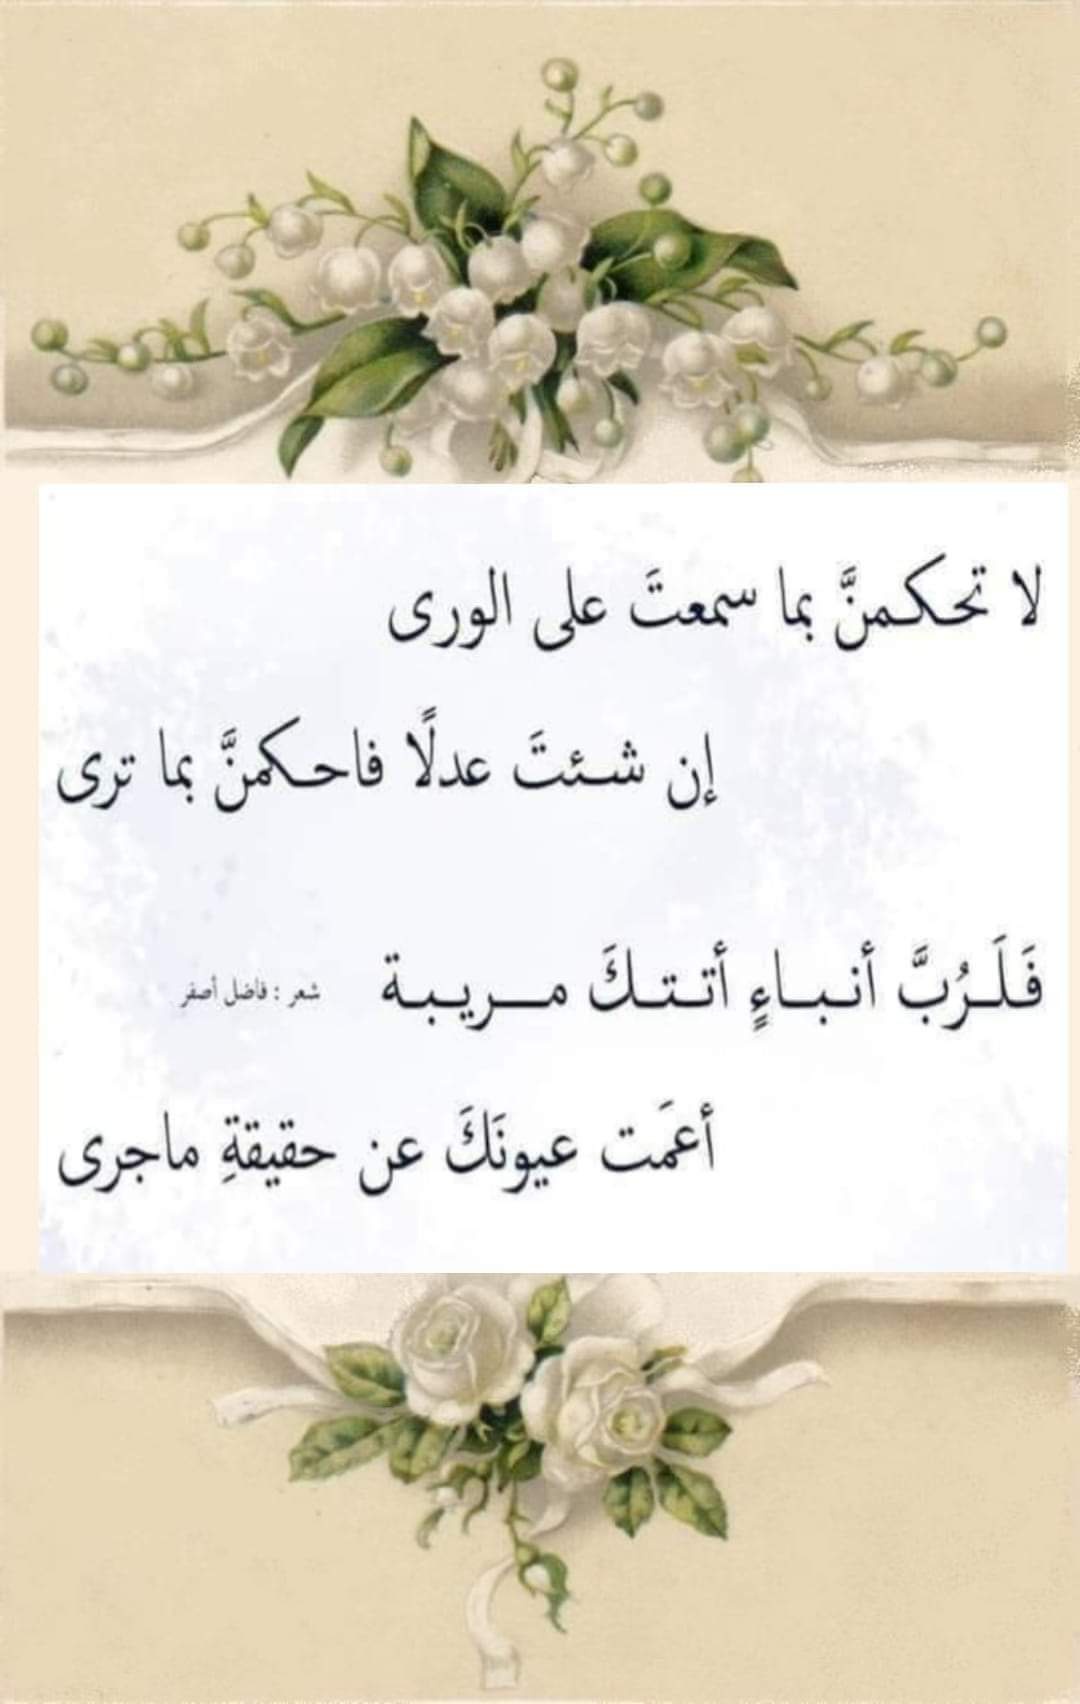 لا تحكمنَّ بما سمعتَ على الورى
إن شئتَ عدلًا فاحكمنَّ بما ترى
فَلَرُبَّ أنباءٍ أتتكَ مريبة
شعر : فاضل أصفر
أعمَت عيونَكَ عن حقيقةِ ماجرى